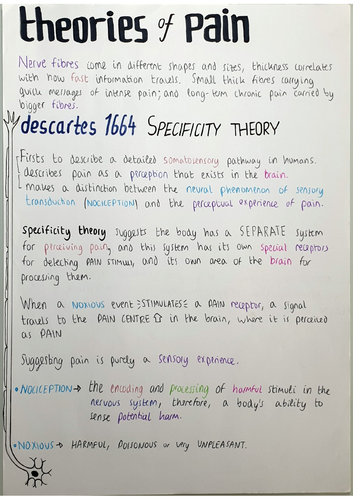 theories of Pain
Nerve fibres come in different shapes and sizes, thickness correlates
with how fast information travels. Small thick fibres carrying
quick messages of intense pain; and long-term chronic pain carried by
bigger fibres.
descartes 1664 SPECIFICITY THEORY
Firsts to describe a detailed somatosensory pathway in humans.
describes pain as a perception that exists in the brain.
makes a distinction between the neural phenomenon of sensory
transduction (NOCICEPTION) and the perceptual experience of pain.
specificity theory suggests the body has a SEPARATE system
for perceiving pain, and this system has its own special receptors
for detecting PAIN STIMULI, and its own area of the brain for
processing them.
When a NOXIOUS event STIMULATES a PAIN receptor, a signal
travels to the PAIN CENTRE in the brain, where it is perceived
as PAIN
Suggesting pain is purely a sensory experience.
• NOCICEPTION → the encoding and processing of harmful stimuli in the
nervous system, therefore, a body's ability to
sense potential harm.
• NOXIOUS → HARMFUL, POISONOUS or very UNPLEASANT.